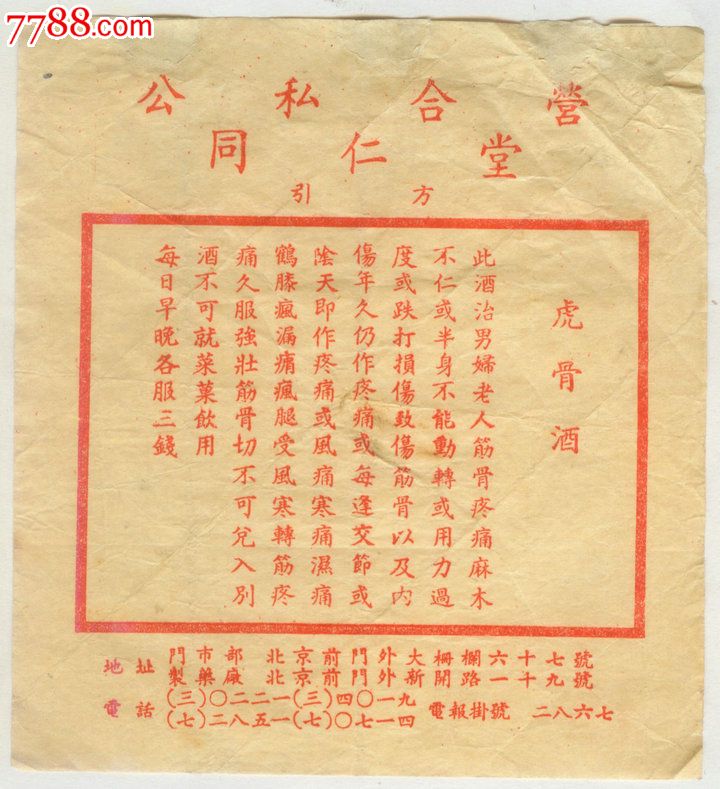 7788.com
公私合營
同仁堂
引方
虎骨酒
此酒治男婦老人筋骨疼痛麻木
不仁或半身不能動轉或用力過
度或跌打損傷致傷筋骨以及內
傷年久仍作疼痛或每逢交節或
陰天即作疼痛或風痛寒痛濕痛
鶴膝瘋漏肩瘋腿受風寒轉筋疼
痛久服強壯筋骨切不可兌入別
酒不可就菜菓飲用
每日早晚各服三錢
地址 門市部 北京前門外大柵欄六十七號
製藥廠 北京前門外新開路一十九號
電話 (三)〇二二一(三)四〇一九
(七)二八五一(七)〇七一四 電報掛號 二八六七